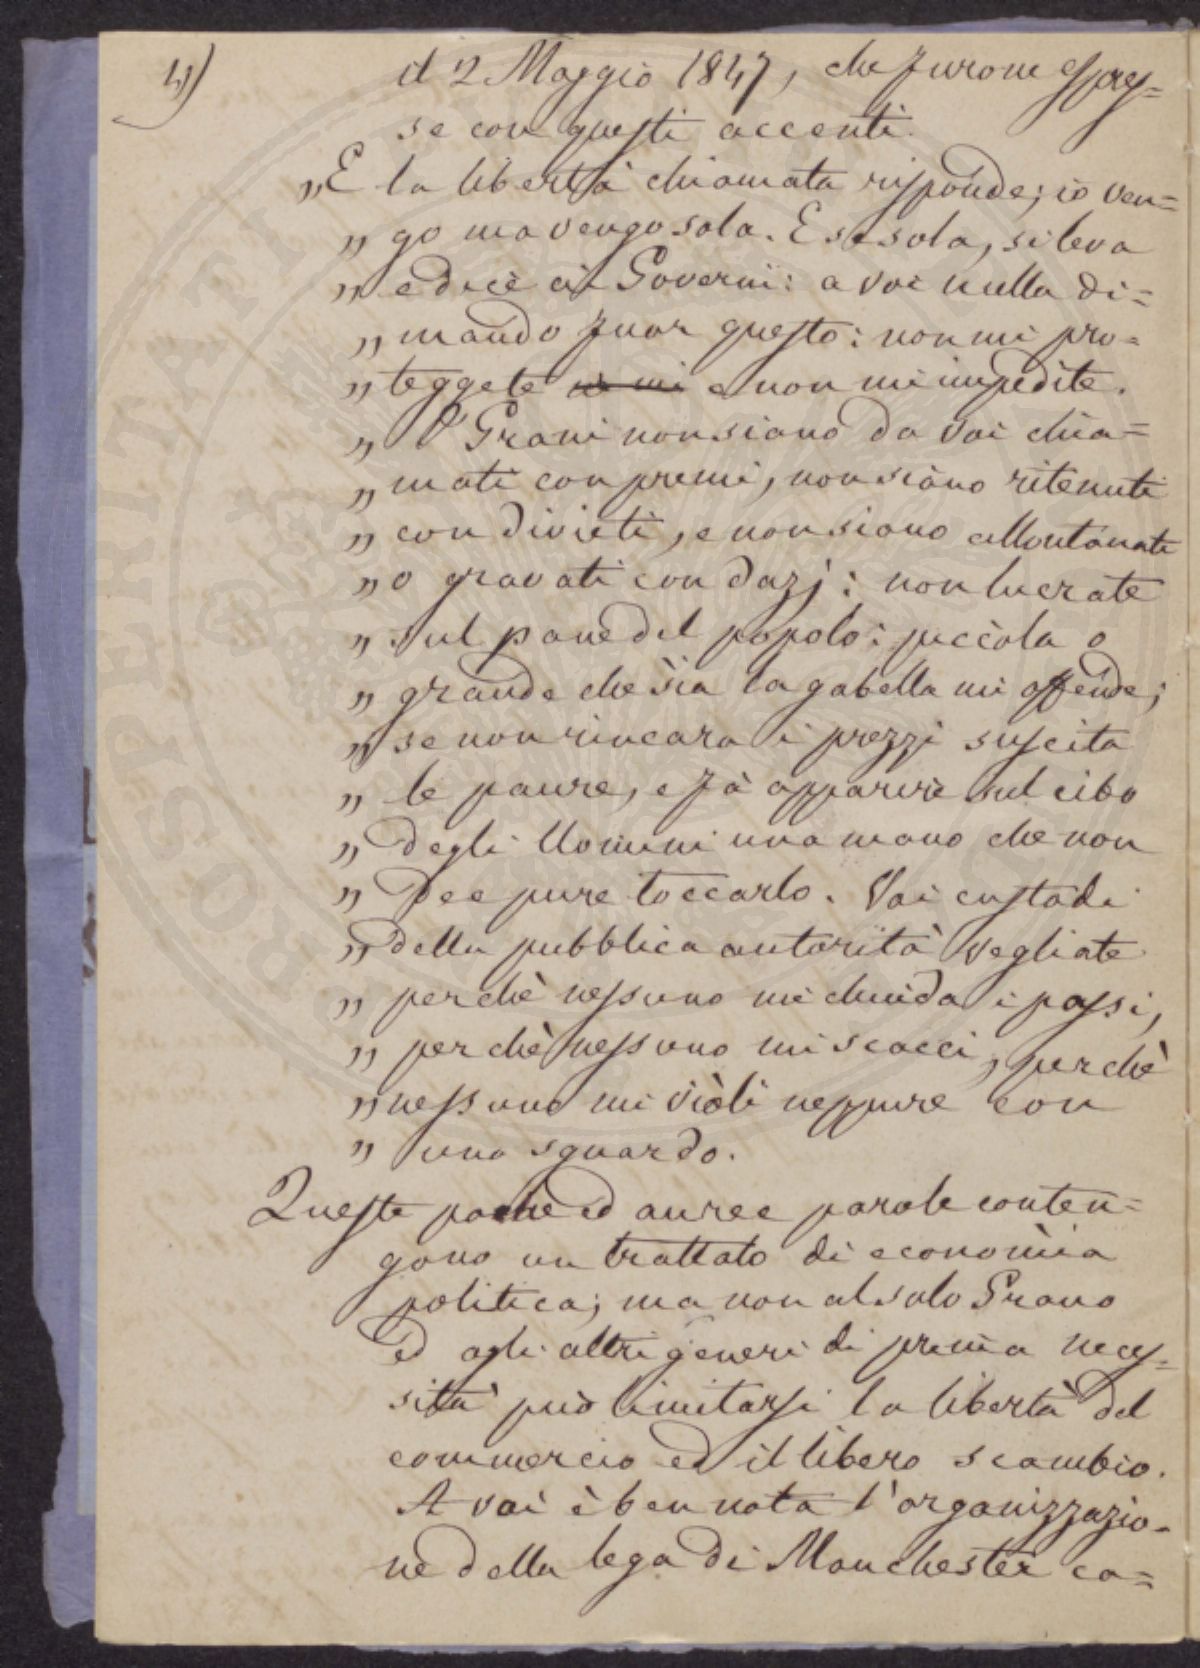 4)
il 2 Maggio 1847, che furono espres=
se con questi accenti.
„E la libertà chiamata risponde; io ven=
„ go ma vengo sola. E sì sola, si leva
„ e dice ai Governi: a voi nulla di=
„ mando fuor questo: non mi pro=
„ teggete e non mi impedite.
„ I Grani non siano da voi chia=
„ mati con premi, non siano ritenuti
„ con divieti, e non siano allontanati
„ o gravati con dazj: non lucrate
„ sul pane del popolo: piccola o
„ grande che sia la gabella mi offende;
„ se non rincara i prezzi suscita
„ le paure, e fà apparire sul cibo
„ degli Uomini una mano che non
„ dee pure toccarlo. Voi custodi
„ della pubblica autorità vegliate
„ perchè nessuno mi chiuda i passi,
„ perchè nessuno mi scacci, perchè
„ nessuno mi vìoli neppure con
„ uno sguardo.
Queste poche ed auree parole conten=
gono un trattato di economìa
politica; ma non al solo Grano
ed agli altri generi di prima neces=
sità può limitarsi la libertà del
commercio ed il libero scambio.
A voi è ben nota l'organizzazio=
ne della lega di Manchester co=
PROSPERITATI